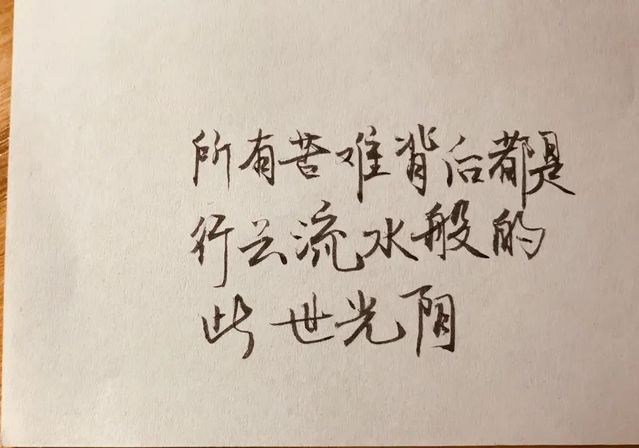 所有苦难背后都是
行云流水般的
此世光阴